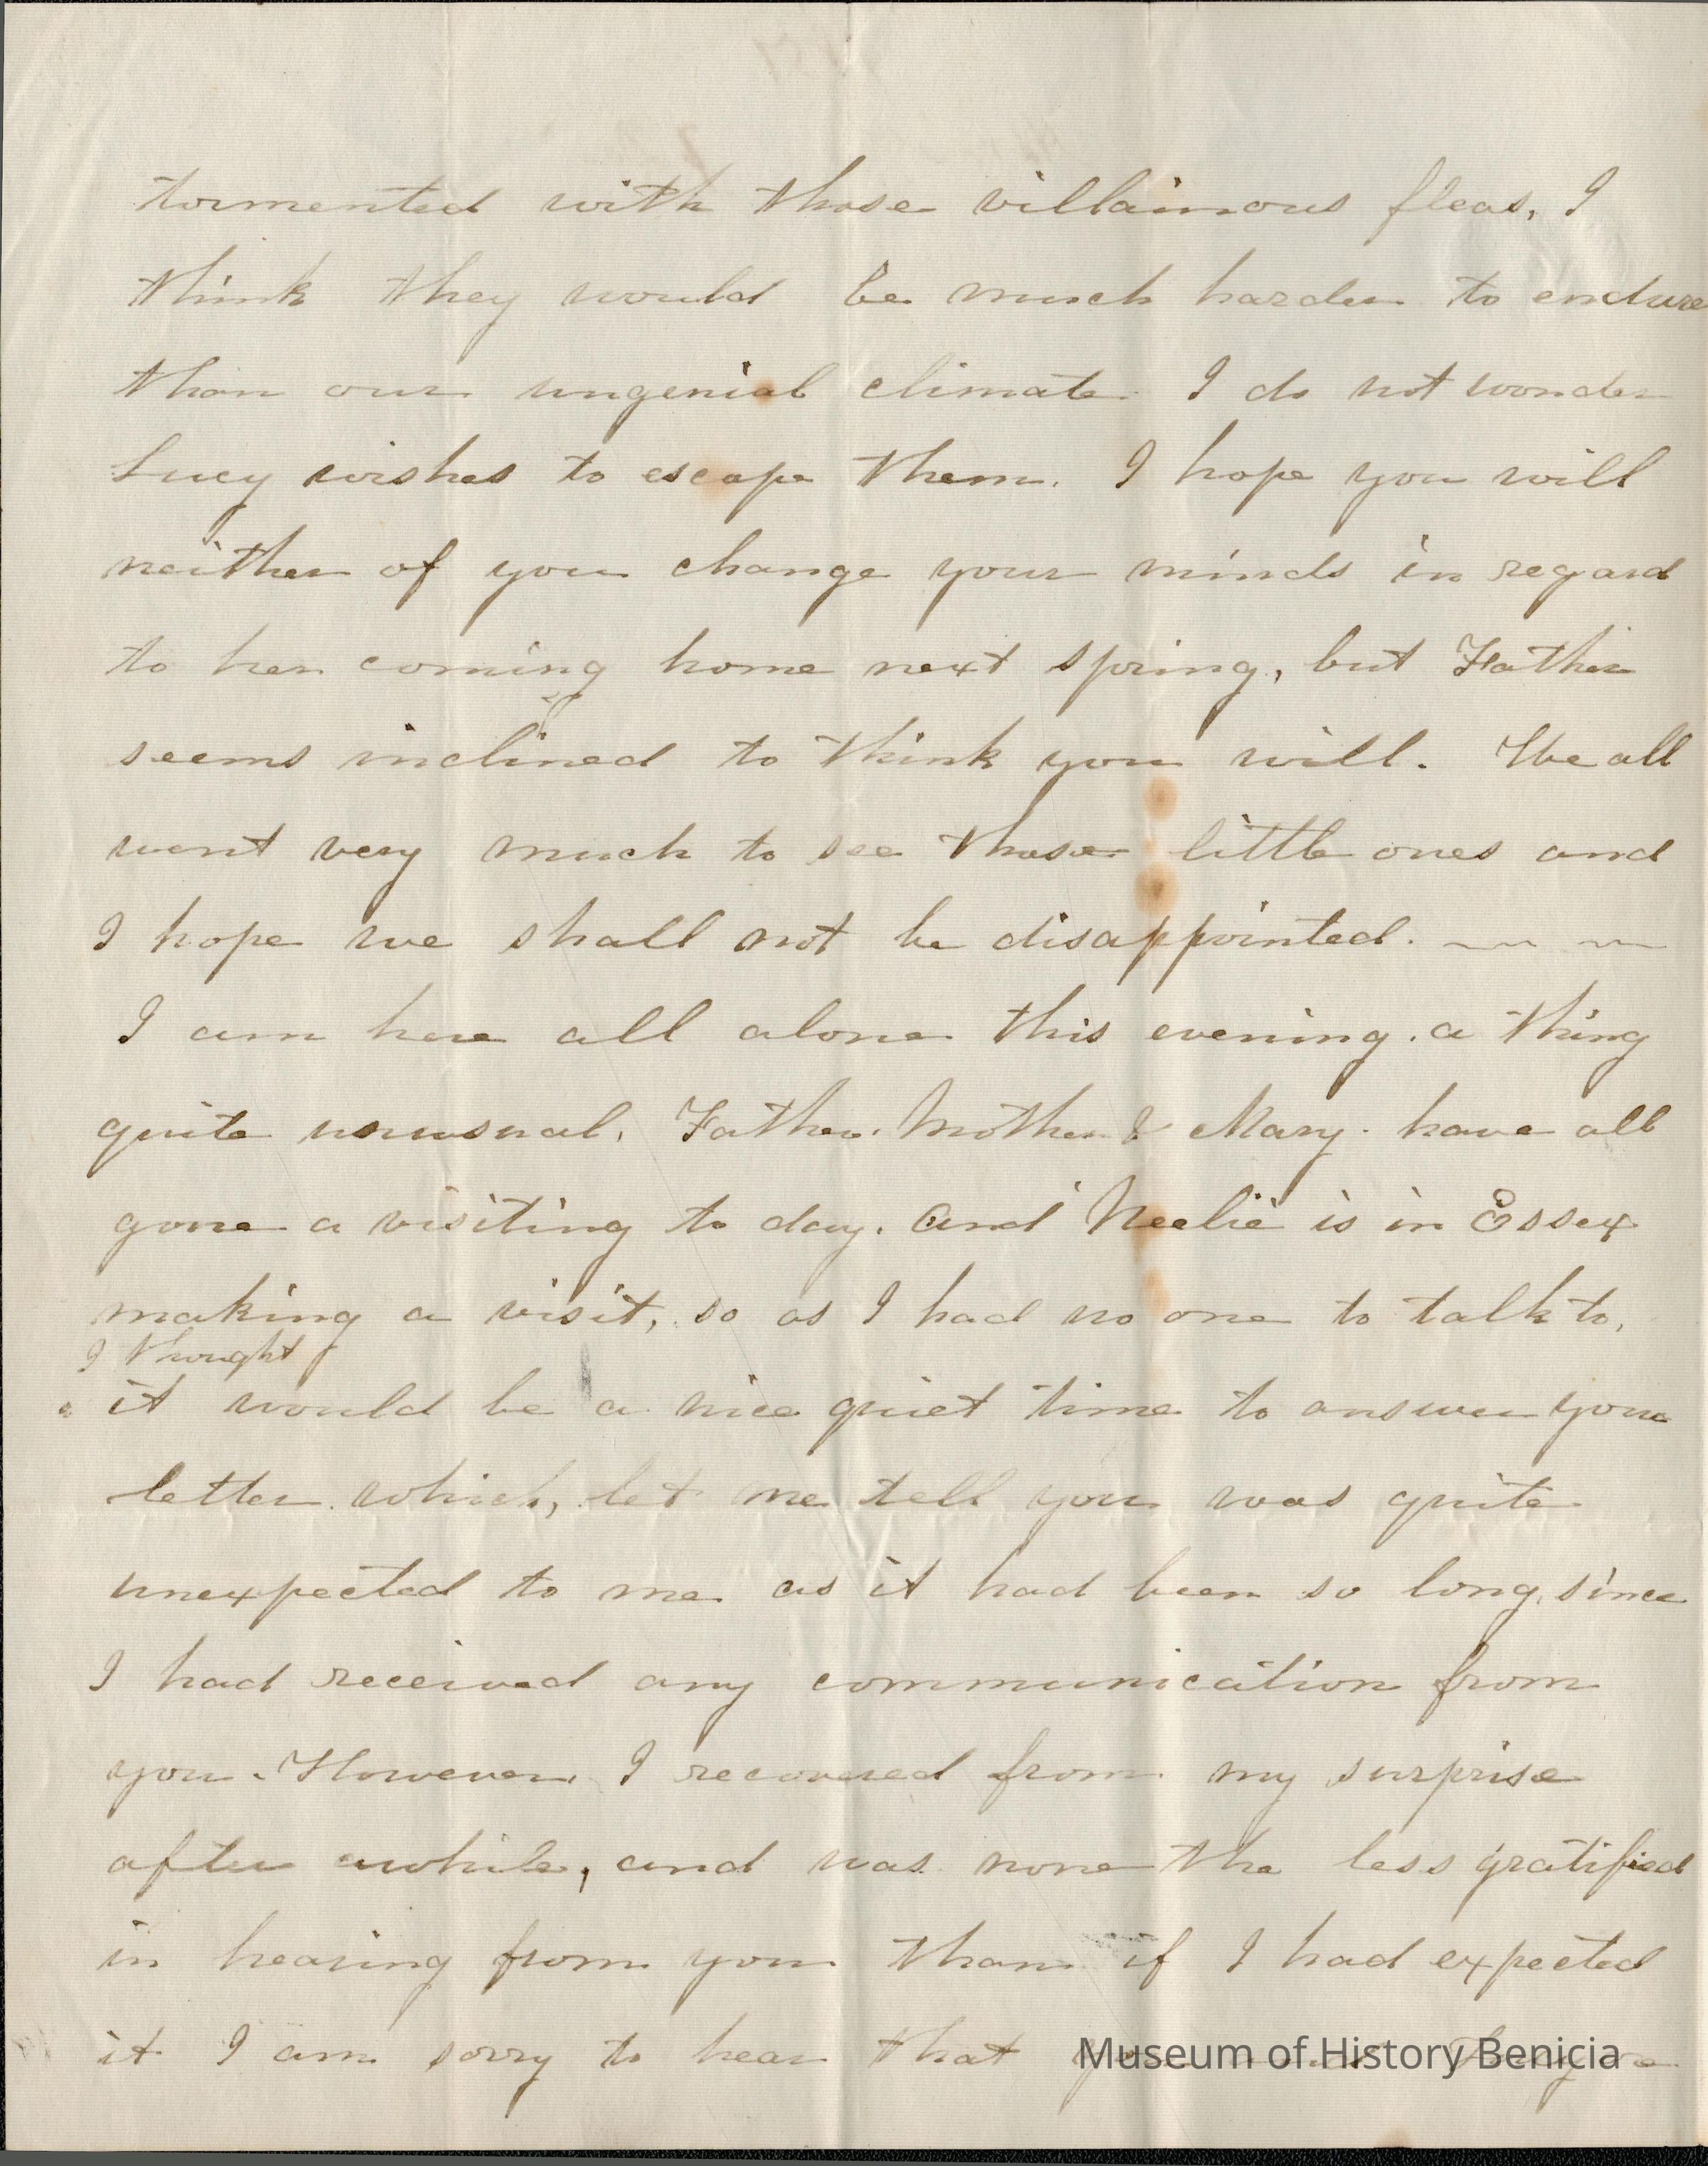 tormented with those villainous fleas, I
think they would be much harder to endure
than our ungenial climate. I do not wonder
Lucy wishes to escape them. I hope you will
neither of you change your minds in regard
to her coming home next spring, but Father
seems inclined to think you will. We all
want very much to see those little ones and
I hope we shall not be disappointed. ~ ~
I am here all alone this evening. a thing
quite unusual. Father. Mother & Mary. have all
gone a visiting to day. and Neelie is in Essex
making a visit, so as I had no one to talk to,
I thought
it would be a nice quiet time to answer your
letter. which, let me tell you was quite
unexpected to me as it had been so long, since
I had received any communication from
you. However, I recovered from my surprise
after awhile, and was none the less gratified
in hearing from you than if I had expected
it I am sorry to hear that
Museum of History Benicia